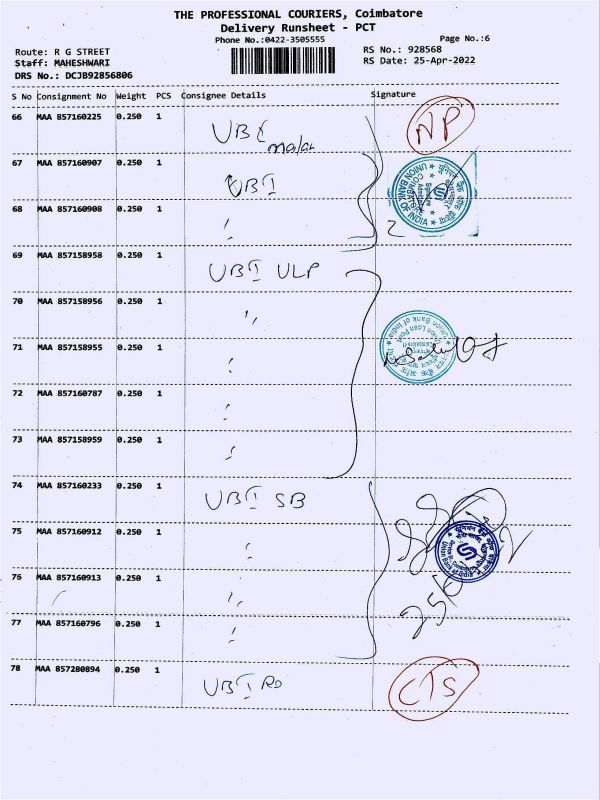 THE PROFESSIONAL COURIERS, Coimbatore
Delivery Runsheet - PCT
Phone No.:0422-3505555 Page No.:6
Route: R G STREET RS No.: 928568
Staff: MAHESHWARI RS Date: 25-Apr-2022
DRS No.: DCJB92856806
S No Consignment No Weight PCS Consignee Details Signature
66 MAA 857160225 0.250 1 NP
67 MAA 857160907 0.250 1 UBI
68 MAA 857160908 0.250 1 "
UNION BANK OF INDIA
69 MAA 857158958 0.250 1 UBI ULP
70 MAA 857158956 0.250 1 "
71 MAA 857158955 0.250 1 "
Union Bank of India
Union Loan Point
72 MAA 857160787 0.250 1 "
73 MAA 857158959 0.250 1 "
74 MAA 857160233 0.250 1 UBI SB
75 MAA 857160912 0.250 1 "
76 MAA 857160913 0.250 1 "
77 MAA 857160796 0.250 1 "
78 MAA 857280894 0.250 1 UBI RO CTS